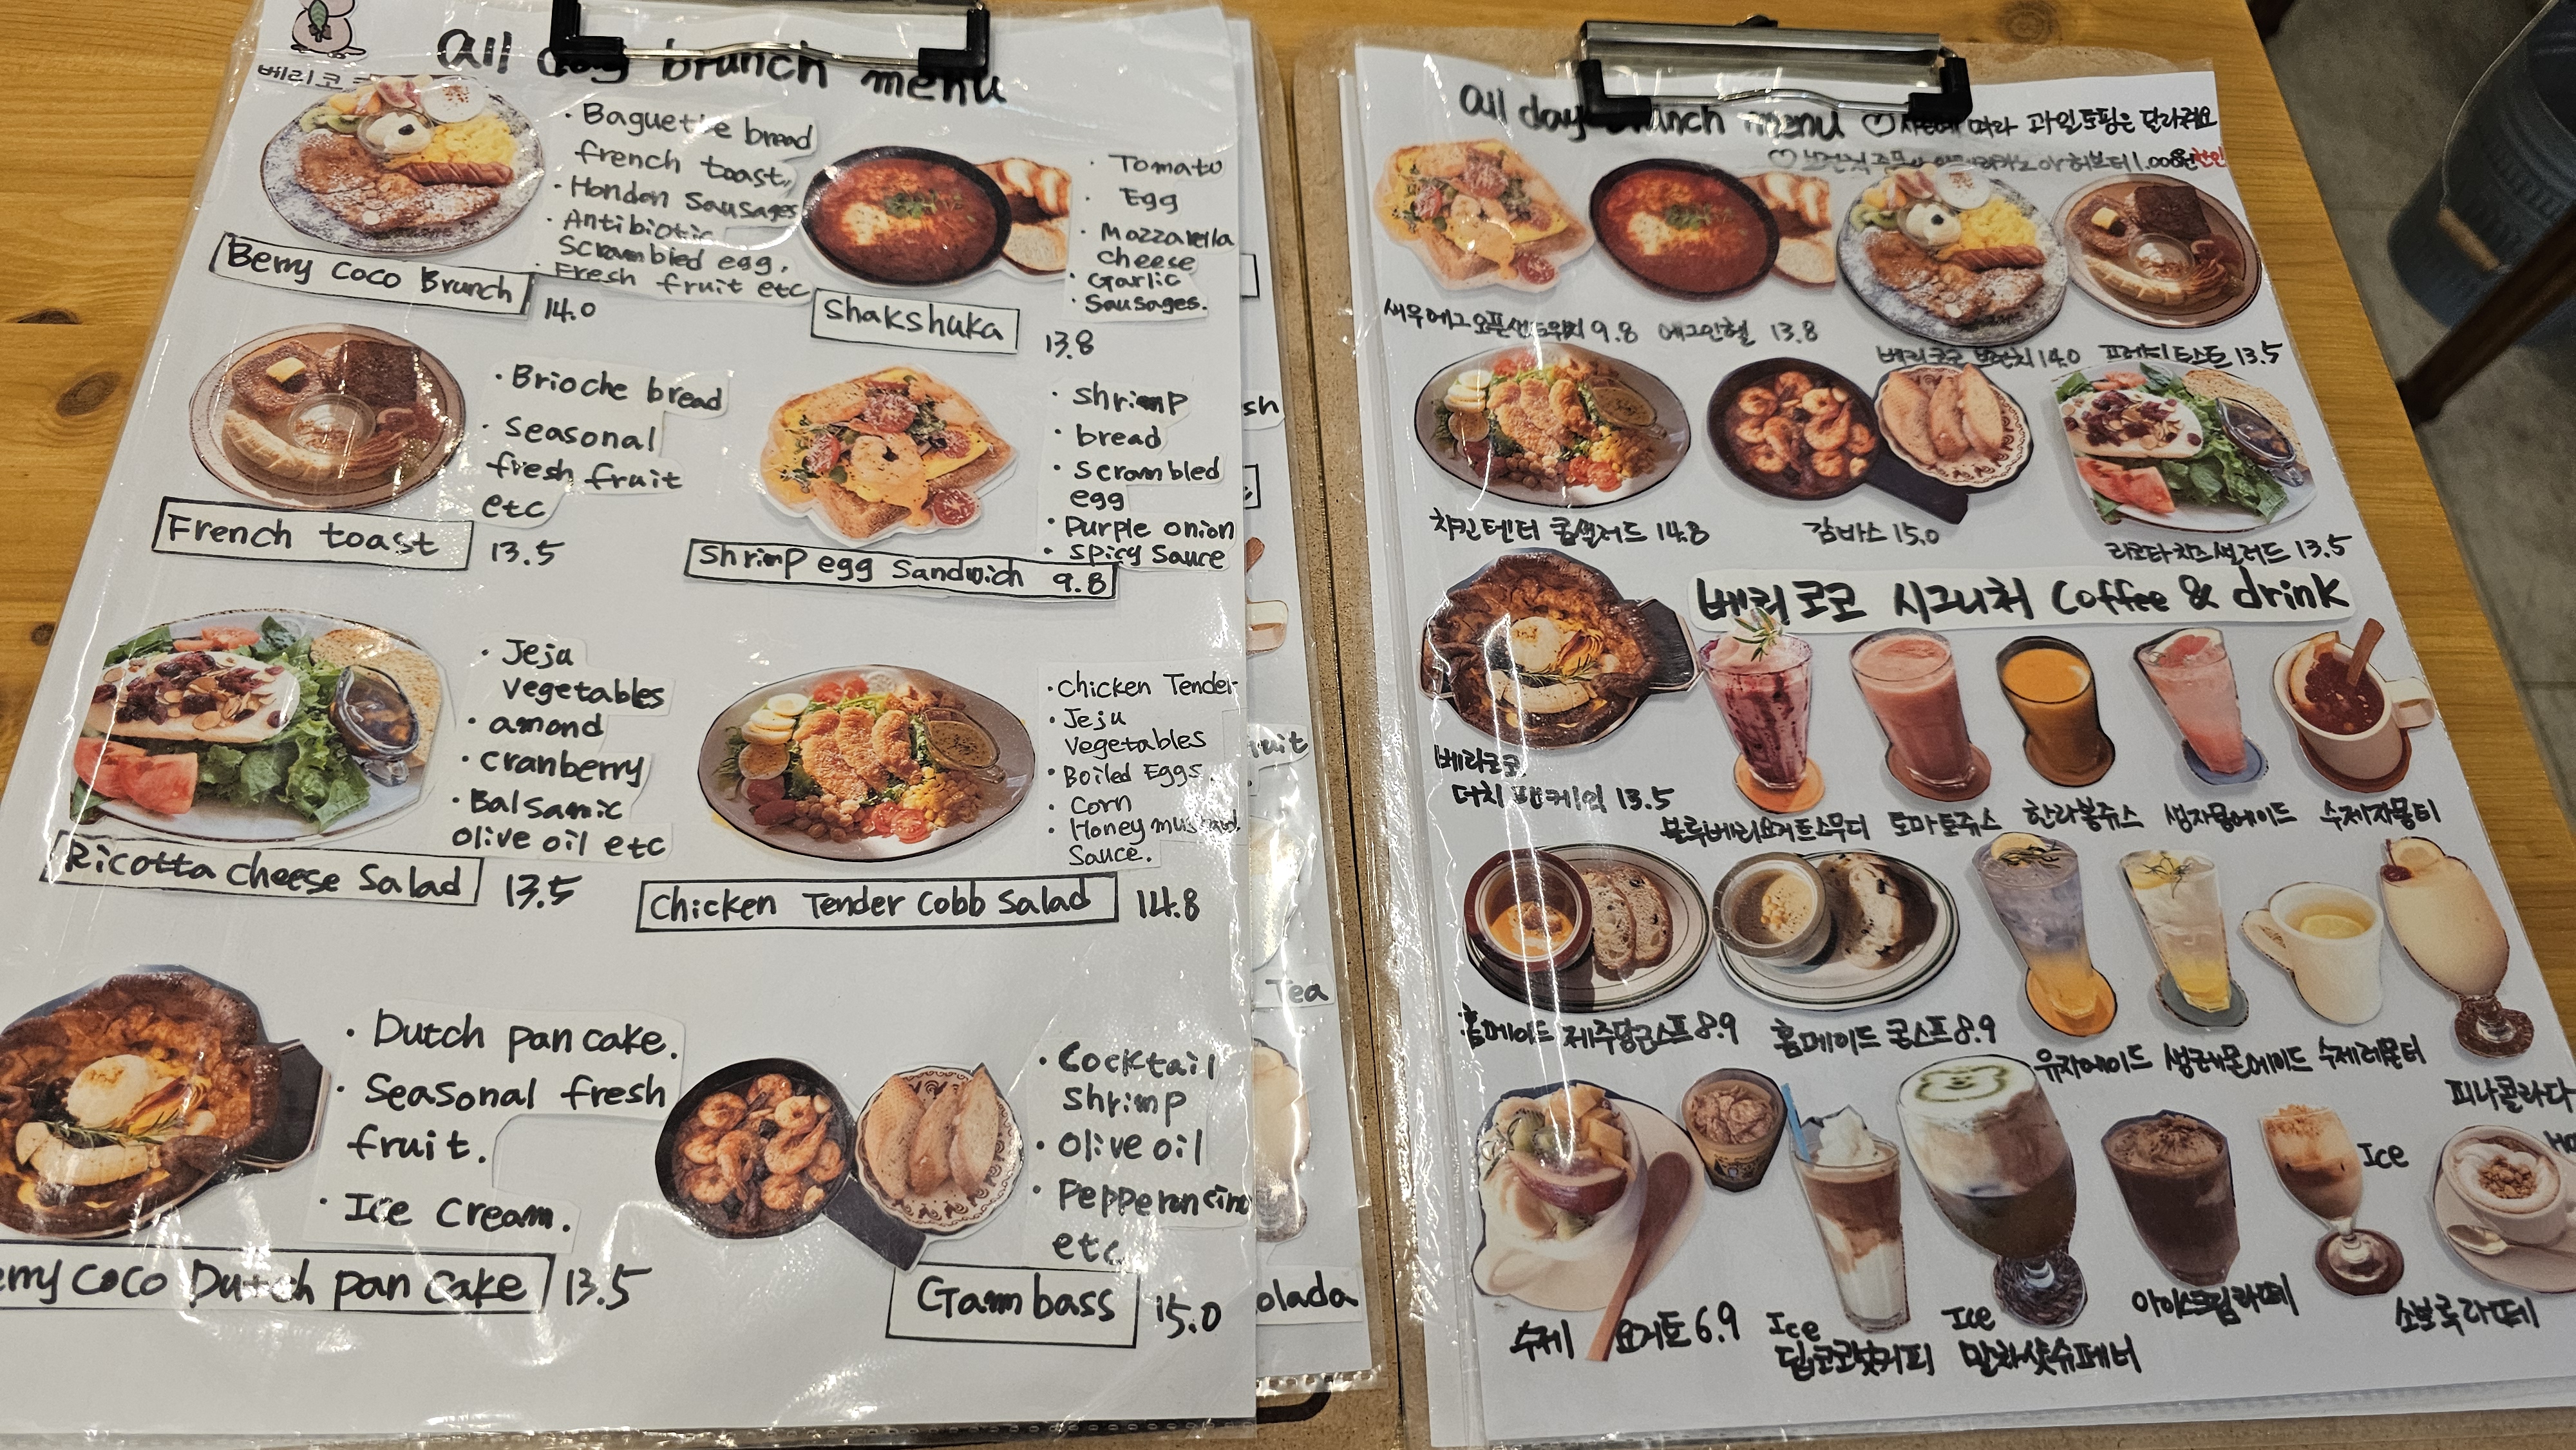 베리코
all day brunch menu
· Baguette bread
french toast,
· Hondon Sausages
· Antibiotic
Scrambled egg.
· Fresh fruit etc
Berry Coco Brunch
14.0
· Tomato
· Egg
· Mozzarella
cheese
· Garlic
· Sausages.
Shakshuka
13.8
· Brioche bread
· Seasonal
fresh fruit
etc
French toast
13.5
· Shrimp
· bread
· Scrambled
egg
· Purple onion
· Spicy Sauce
Shrimp egg Sandwich 9.8
· Jeju
Vegetables
· amond
· cranberry
· Balsamic
olive oil etc
Ricotta Cheese Salad
13.5
· Chicken Tender
· Jeju
Vegetables
· Boiled Eggs
· Corn
· Honey mustard
Sauce.
Chicken Tender Cobb Salad
14.8
· Dutch pan cake.
· Seasonal fresh
fruit.
· Ice cream.
erry coco Dutch pan cake
13.5
· Cocktail
Shrimp
· Olive oil
· Pepperoncino
etc
Gambass
15.0
sh
fruit
Tea
olada
all day brunch menu
♡ 시즌에 따라 과일토핑은 달라져요
1.000원 할인
새우에그오픈샌드위치 9.8
에그인헬 13.8
베리코코 브런치 14.0
프렌치토스트 13.5
치킨텐더 콥샐러드 14.8
감바스 15.0
리코타치즈샐러드 13.5
베리코코 시그니처 Coffee & drink
베리코코
더치 팬케익 13.5
블루베리요거트스무디
토마토쥬스
한라봉쥬스
생자몽에이드
수제자몽티
홈메이드 제주당근스프 8.9
홈메이드 콘스프 8.9
유자에이드
생레몬에이드
수제레몬티
피나콜라다
수제 요거트 6.9
Ice
딥코코넛커피
Ice
말차샷슈페너
아이스크림라떼
Ice
소보루라떼
Ho